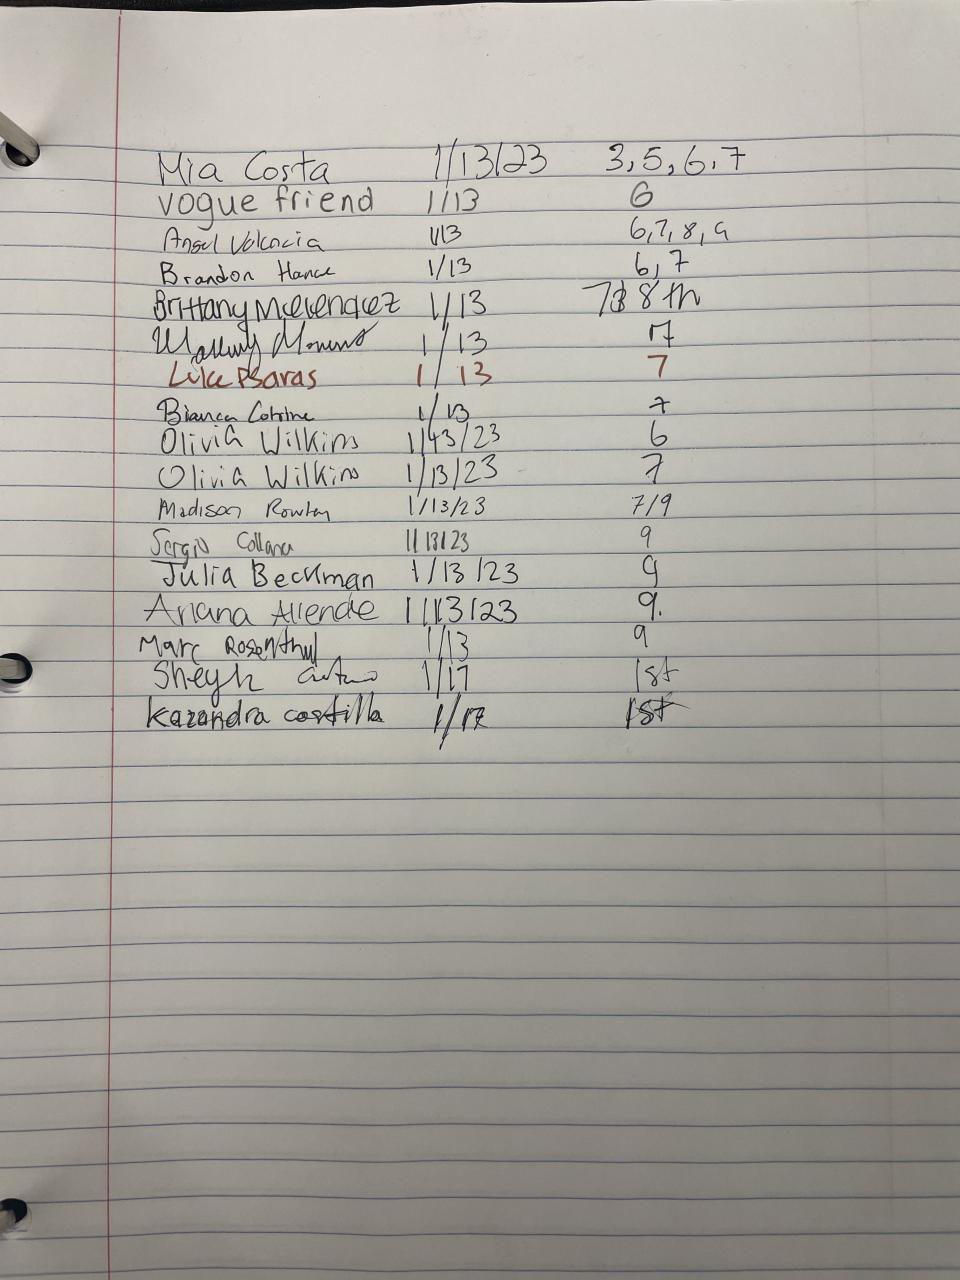 Mia Costa 1/13/23 3,5,6,7
vogue friend 1/13 6
Angel Valencia 1/13 6,7,8,9
Brandon Hance 1/13 6,7
Brittany Melendez 1/13 7&8th
1/13 7
Luke Psaras 1/13 7
Bianca 1/13 7
Olivia Wilkins 1/13/23 6
Olivia Wilkins 1/13/23 7
Madison Rowley 1/13/23 7/9
Sergio 1/13/23 9
Julia Beckman 1/13/23 9
Ariana Allende 1/13/23 9.
Marc Rosenthal 1/13 9
1/17 1st
Kazandra castilla 1/17 1st